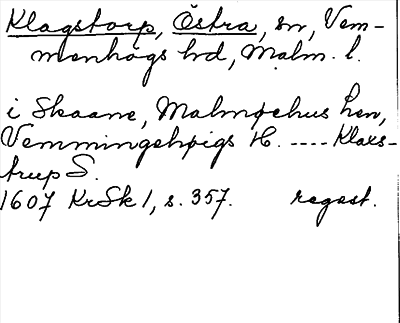 Klagstorp, Östra, sn, Vem-
menhögs hd, Malm. l.
i Skaane, Malmøehus Len,
Vemmingehøigs H. .... Klaxs-
trup S.
1607 KrSk 1, s. 357. regest.